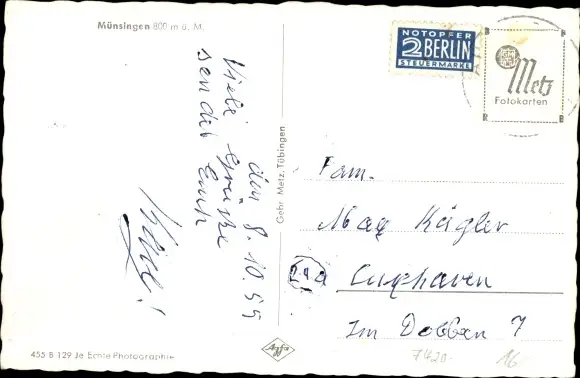 Münsingen 800 m ü. M.
NOTOPFER
2 BERLIN
STEUERMARKE
Metz
Fotokarten
den 8. 10. 55
Viele Grüße
sendet Euch
Gebr. Metz, Tübingen
Fam.
Max Kägler
Cuxhaven
Im Dobben 7
7420
16
455 B 129 Je Echte Photographie
Agfa